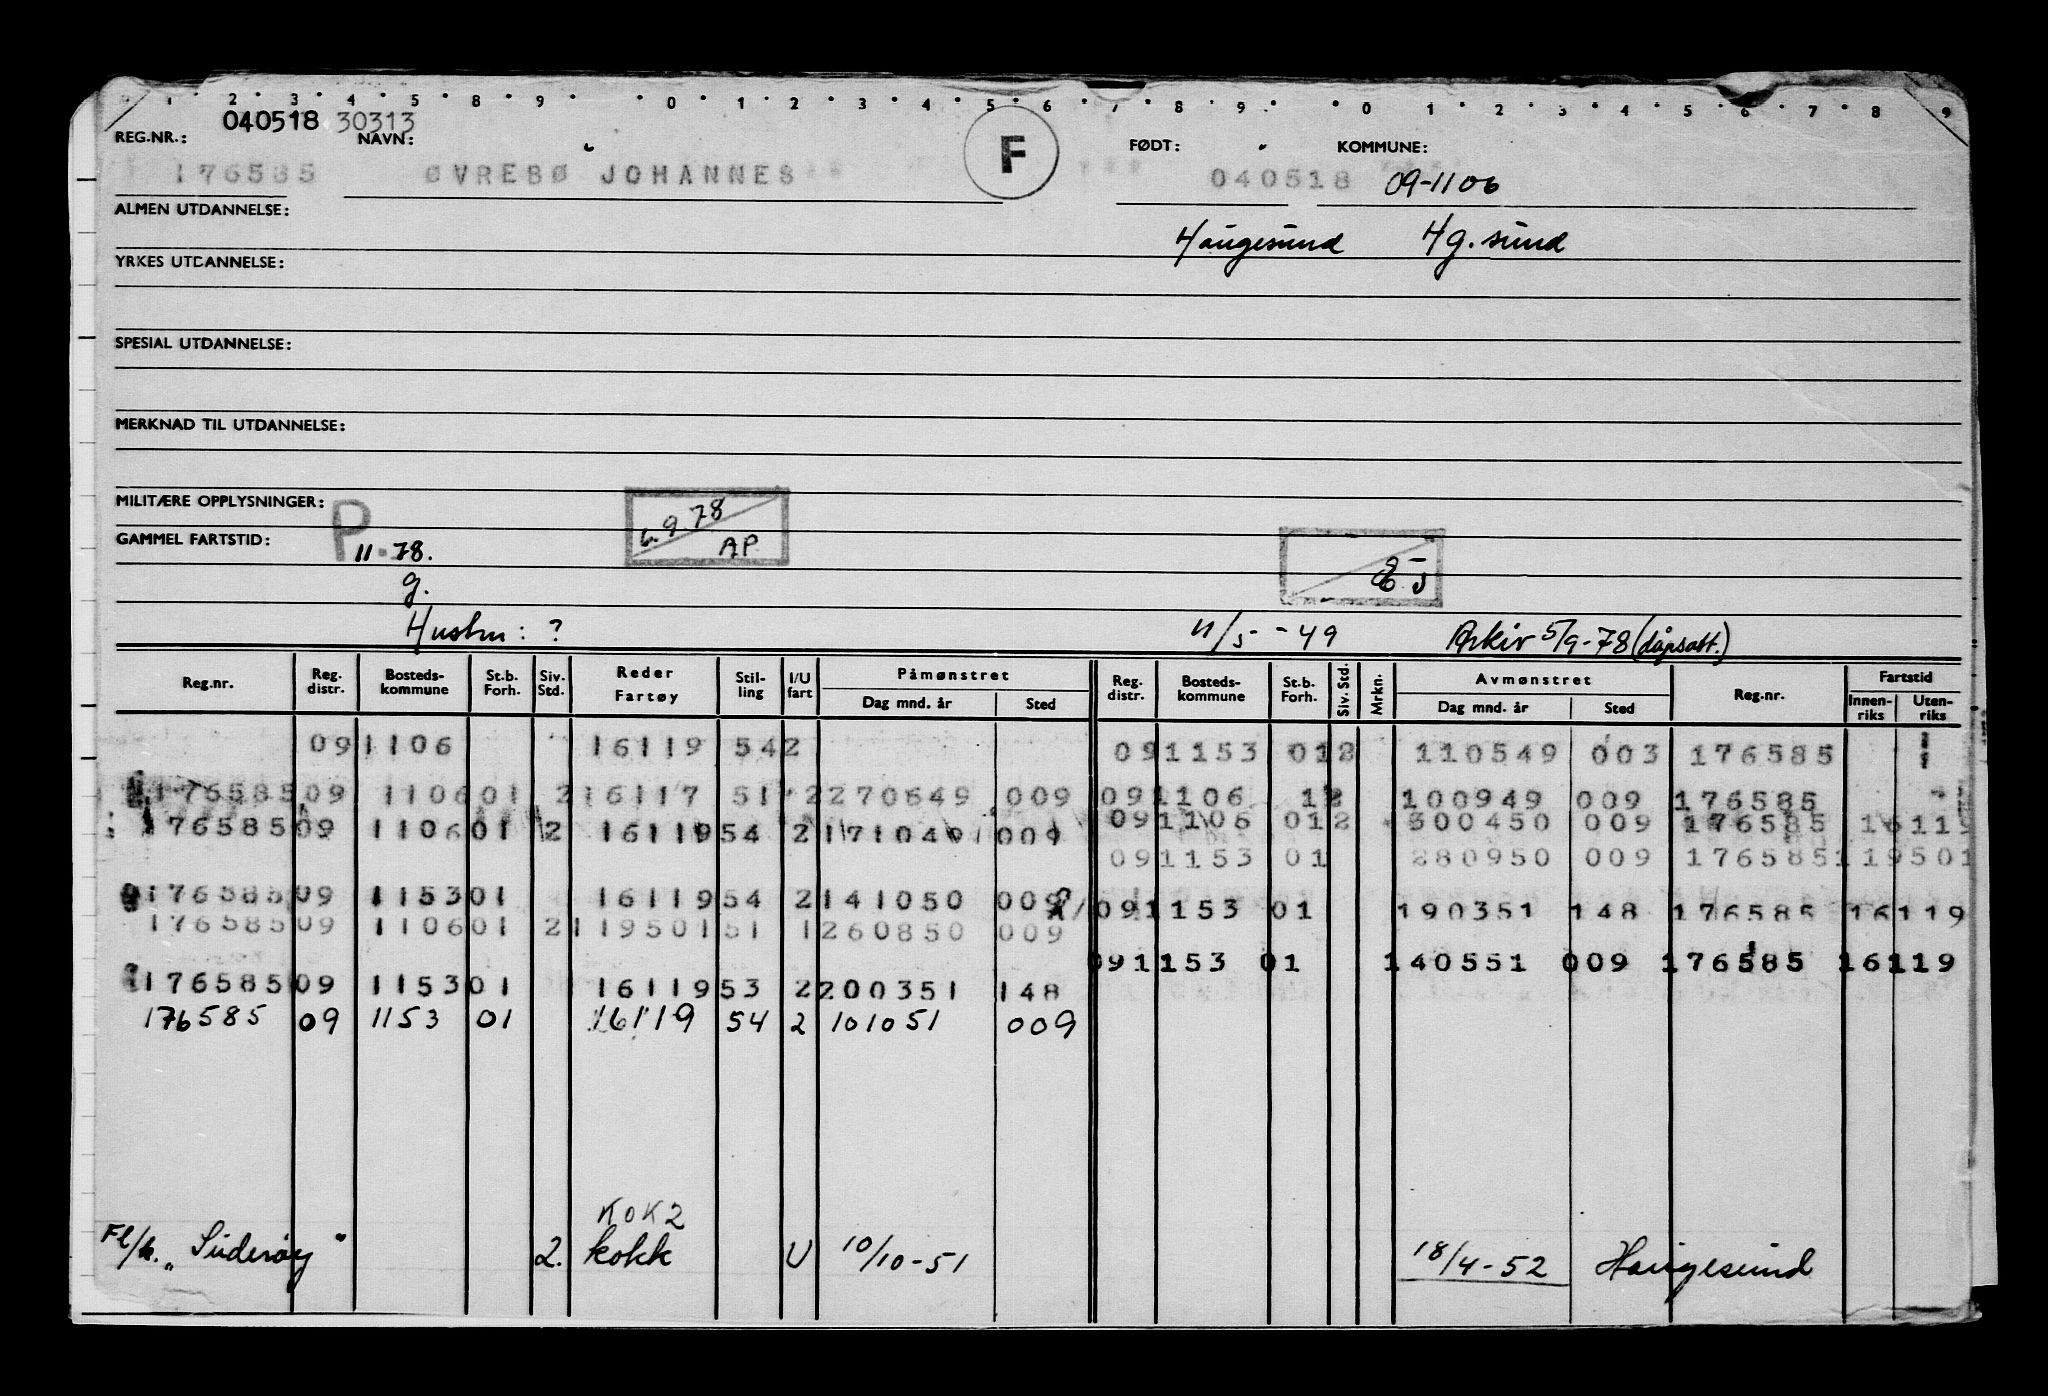 1 2 3 4 5 8 9 0 1 2 3 4 5 6 7 8 9 0 1 2 3 4 5 6 7 8 9
040518 30313
REG.NR.: NAVN: F FØDT: KOMMUNE:
176585 ØVREBØ JOHANNES 040518 09-1106
ALMEN UTDANNELSE: Haugesund Hg.sund
YRKES UTDANNELSE:
SPESIAL UTDANNELSE:
MERKNAD TIL UTDANNELSE:
MILITÆRE OPPLYSNINGER: P 6.9.78
GAMMEL FARTSTID: 11.78. AP
g.
Hustru: ? 11/5-49 Arkiv 5/9-78 (dåpsatt.)
Reg.nr. Reg. distr. Bosteds-kommune St.b. Forh. Siv. Std. Reder Fartøy Stil-ling I/U fart Påmønstret Reg. distr. Bosteds-kommune St.b. Forh. Siv. Std. Mrkn. Avmønstret Reg.nr. Fartstid
Dag mnd. år Sted Dag mnd. år Sted Innen-riks Uten-riks
09 1106 16119 54 2 09 1153 01 2 110549 003 176585
176585 09 1106 01 2 16117 51 2 270649 009 09 1106 1 2 100949 009 176585
176585 09 1106 01 2 16119 54 2 171049 009 09 1106 01 2 300450 009 176585 16119
09 1153 01 280950 009 176585 119501
176585 09 1153 01 16119 54 2 141050 009 09 1153 01 190351 148 176585 16119
176585 09 1106 01 2 119501 51 1 260850 009
09 1153 01 140551 009 176585 16119
176585 09 1153 01 16119 53 2 200351 148
176585 09 1153 01 16119 54 2 101051 009
KOK2
Fl/k. "Suderøy" 2. kokk U 10/10-51 18/4-52 Haugesund